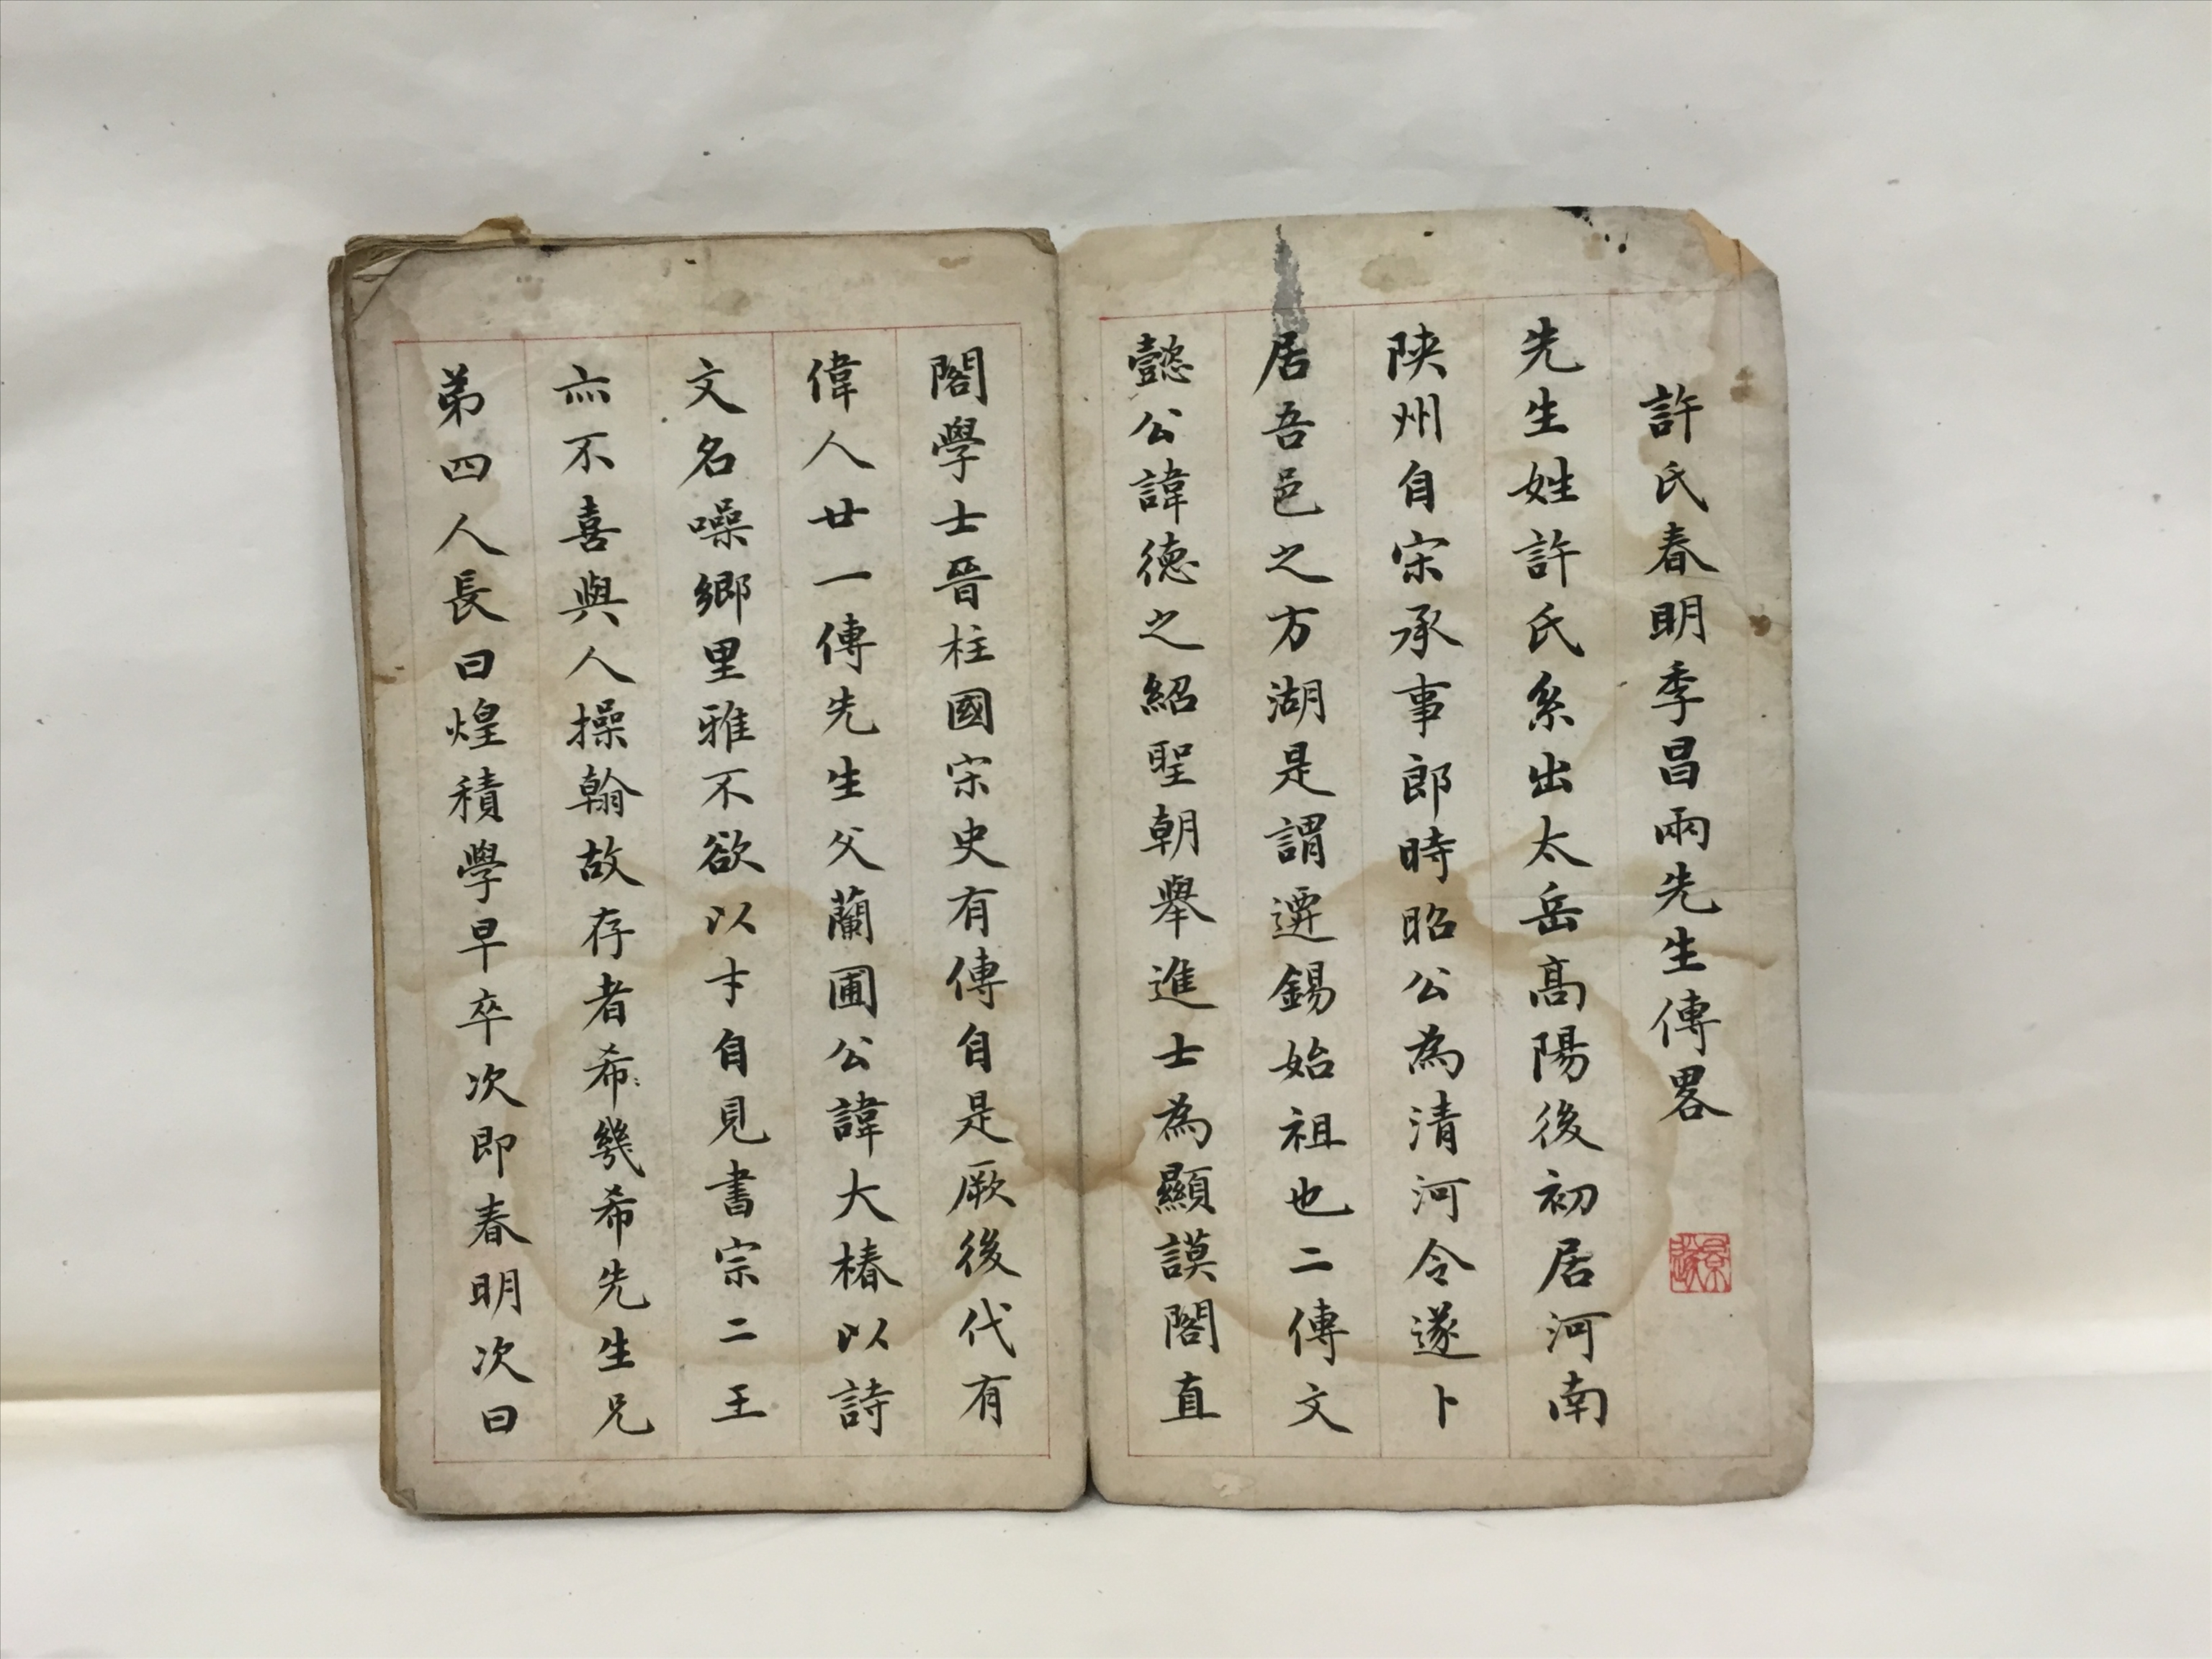 許氏春明季昌兩先生傳畧
先生姓許氏系出太岳高陽後初居河南
陝州自宋承事郎時昭公為清河令遂卜
居吾邑之方湖是謂遷錫始祖也二傳文
懿公諱德之紹聖朝舉進士為顯謨閣直
閣學士晉柱國宋史有傳自是厥後代有
偉人廿一傳先生父蘭圃公諱大椿以詩
文名噪鄉里雅不欲以才自見書宗二王
亦不喜與人操翰故存者希〻幾希先生兄
弟四人長曰煌積學早卒次即春明次曰